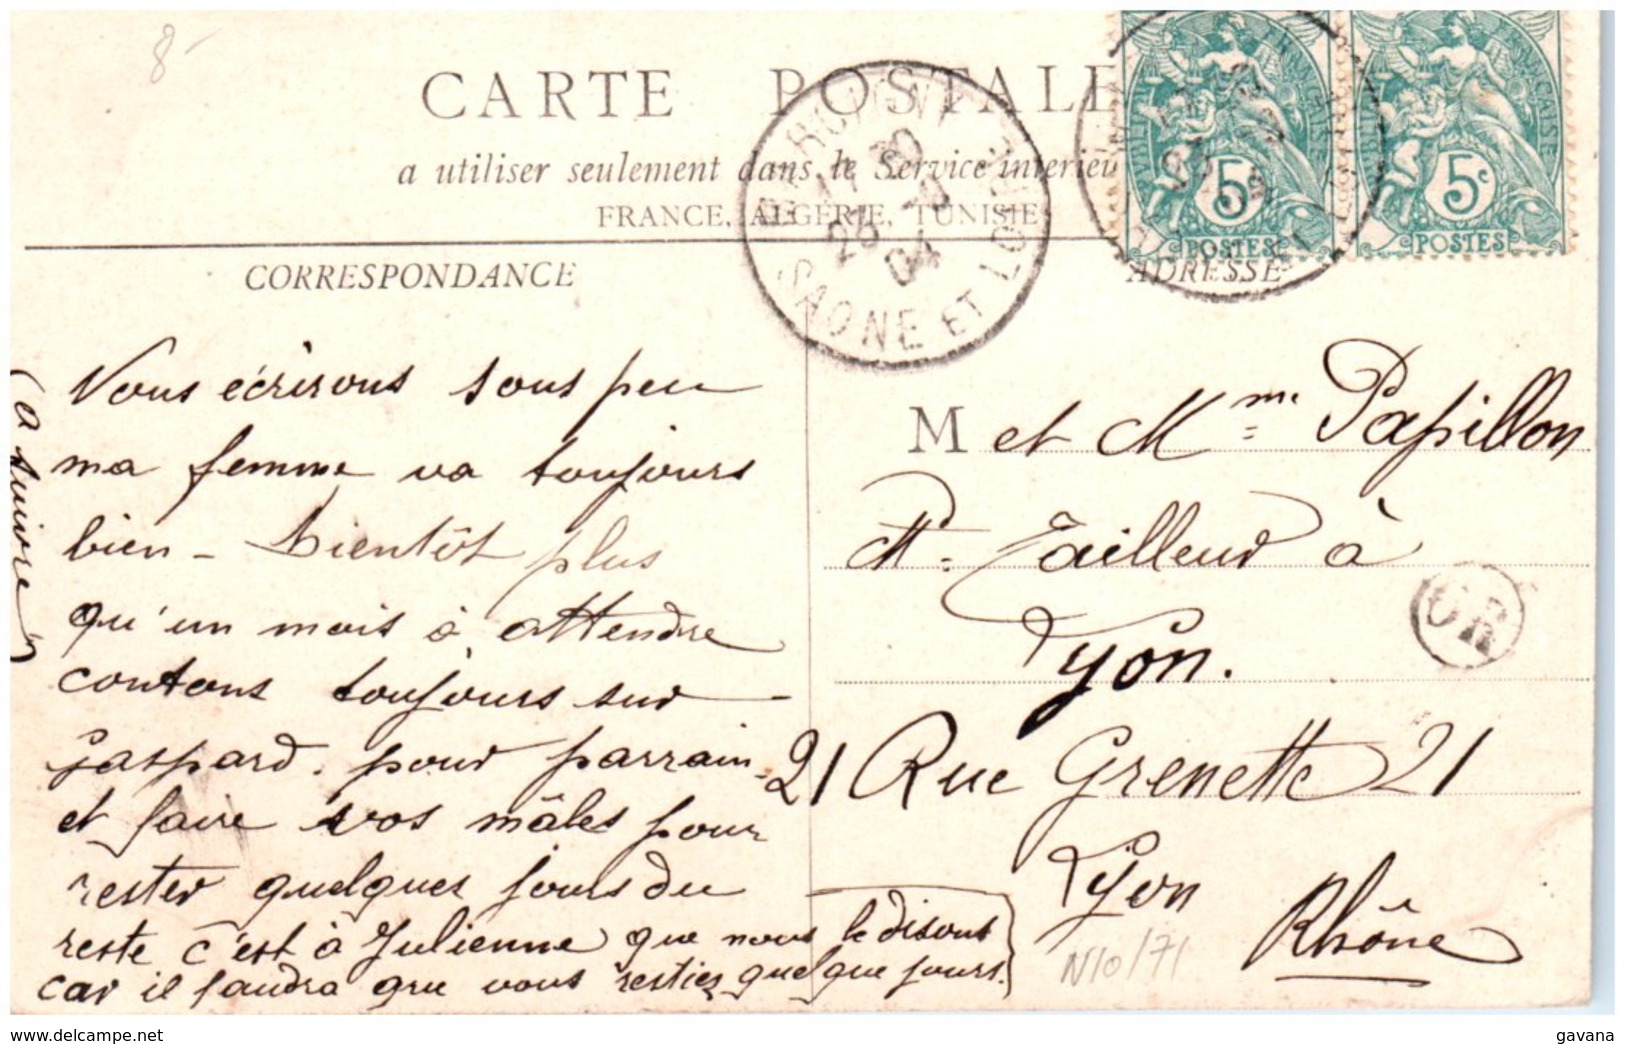 8-
CARTE POSTALE
a utiliser seulement dans le Service interieur
FRANCE, ALGÉRIE, TUNISIE
CORRESPONDANCE
ADRESSE
5c
POSTES
5c
POSTES
26
04
SAONE ET LOIRE
Vous écrirons sous peu
ma femme va toujours
bien - Bientôt plus
qu'un mois à attendre
contons toujours sur
Gaspard. pour parrain
et faire vos mâles pour
rester quelques jours du
reste c'est à Julienne que nous le disons
car il faudra que vous restiez quelque jours.
(a suivre)
M et Mme Papillon
Md Tailleur à
Lyon.
21 Rue Grenette 21
Lyon
Rhône
OR
N10/71
www.delcampe.net
gavana